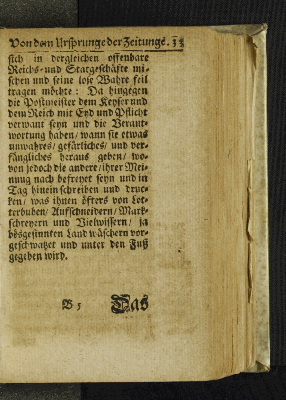 Von dem Ursprunge der Zeitungē. 33
sich in dergleichen offenbare
Reichs- und Statgeschäfte mi-
schen und seine lose Wahre feil
tragen möchte: Da hingegen
die Postmeister dem Keyser und
dem Reich mit Eyd und Pflicht
verwant seyn und die Verant-
wortung haben/ wann sie etwas
unwahres/ gefärliches/ und ver-
fängliches heraus geben/ wo-
von jedoch die andere/ ihrer Mei-
nung nach befreyet seyn und in
Tag hinein schreiben und druc-
ken/ was ihnen öfters von Lot-
terbuben/ Aufschneidern/ Mark-
schreyern und Vielwissern/ ja
bösgesinnten Landwäschern vor-
geschwatzet und unter den Fuß
gegeben wird.
B 5 Das